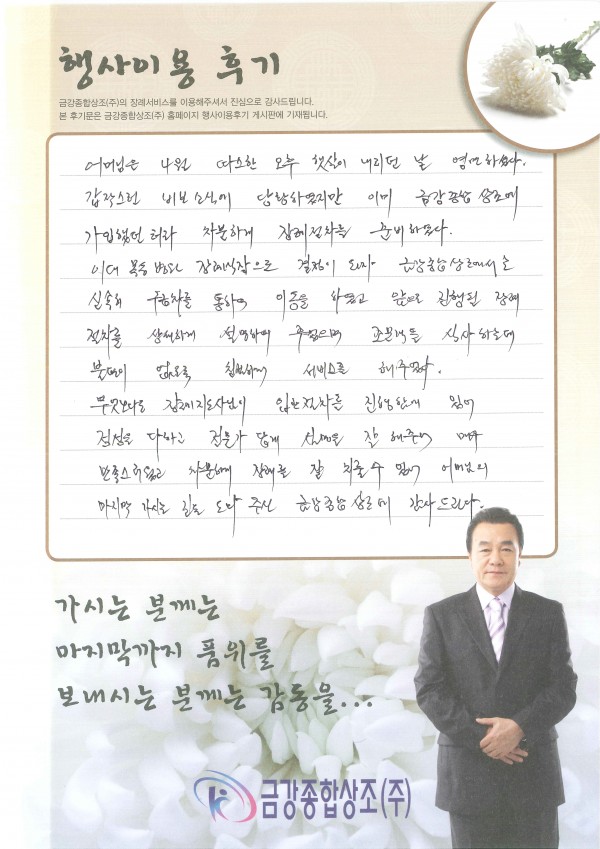 행사이용 후기
금강종합상조(주)의 장례서비스를 이용해주셔서 진심으로 감사드립니다.
본 후기문은 금강종합상조(주) 홈페이지 행사이용후기 게시판에 기재됩니다.
어머님은 4월 따스한 오후 햇살이 내리던 날 영면하셨다.
갑작스런 비보 소식에 당황하였지만 이미 금강종합상조에
가입했던터라 차분하게 장례절차를 준비하였다.
이대 목동병원 장례식장으로 결정이 되자 금강종합상조에서 신
속히 차를 통하여 이동을 하였고 앞으로 진행될 장례
절차를 상세하게 설명하여 주었으며 조문객들 식사하는데
불편이 없도록 친절하게 서비스를 해주었다.
무엇보다도 장례지도사님이 입관절차를 진행함에 있어
정성을 다하고 전문가 답게 설명을 잘 해주어 매우
만족스러웠고 차분하게 장례를 잘 치룰 수 있어 어머님의
마지막 가시는 길을 도와 주신 금강종합상조에 감사드린다.
가시는 분께는
마지막까지 품위를
보내시는 분께는 감동을...
금강종합상조(주)